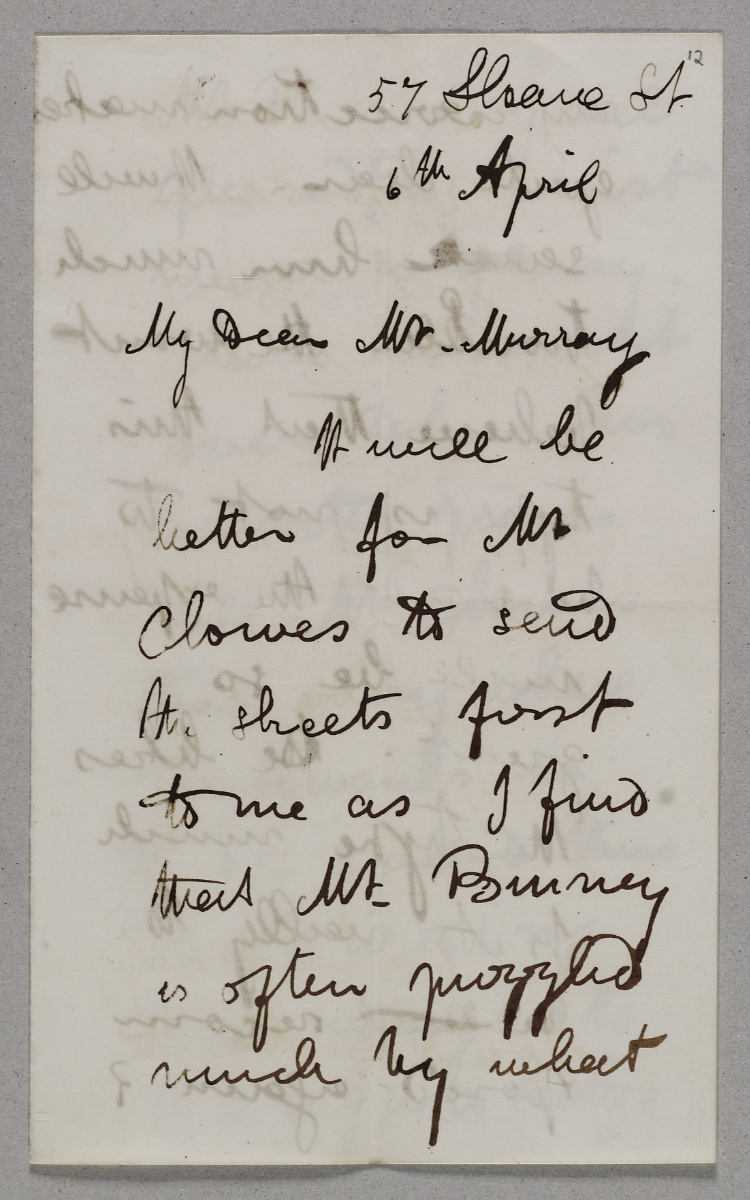 12
57 Sloane St
6th April
My Dear Mr. Murray
It will be
better for Mr
Clowes to send
the sheets first
to me as I find
that Mr. Binney
is often puzzled
much by what